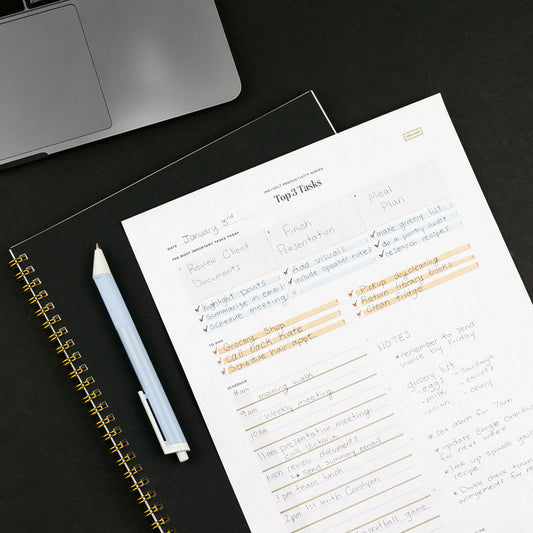 INK+VOLT PRODUCTIVITY SERIES
Top 3 Tasks
DATE January 3rd
THE MOST IMPORTANT TASKS TODAY
Review Client Documents
Finish Presentation
Meal Plan
✓ highlight points
✓ Summarize in email
✓ Schedule meeting
✓ Add visuals
✓ include speaker notes
✓ make grocery list
✓ do a pantry audit
✓ research recipes
TO DOS
✓ Grocery Shop
✓ Call back Kate
✓ Schedule hair appt.
✓ Pickup drycleaning
✓ Return library books
✓ Clean fridge
SCHEDULE
8am morning walk
9am weekly meeting
10am
11am presentation meeting
call
noon review documents
↳ send summary email
1pm team lunch
2pm 1:1 with Carolynn
basketball game
NOTES
* remember to send
invoice by Friday
grocery list
- eggs
- milk
- onion
- carrots
- celery
* set alarm for 7am
* update Google calendar
for next week
* look up spinach
recipe
* Double check
arrangements for